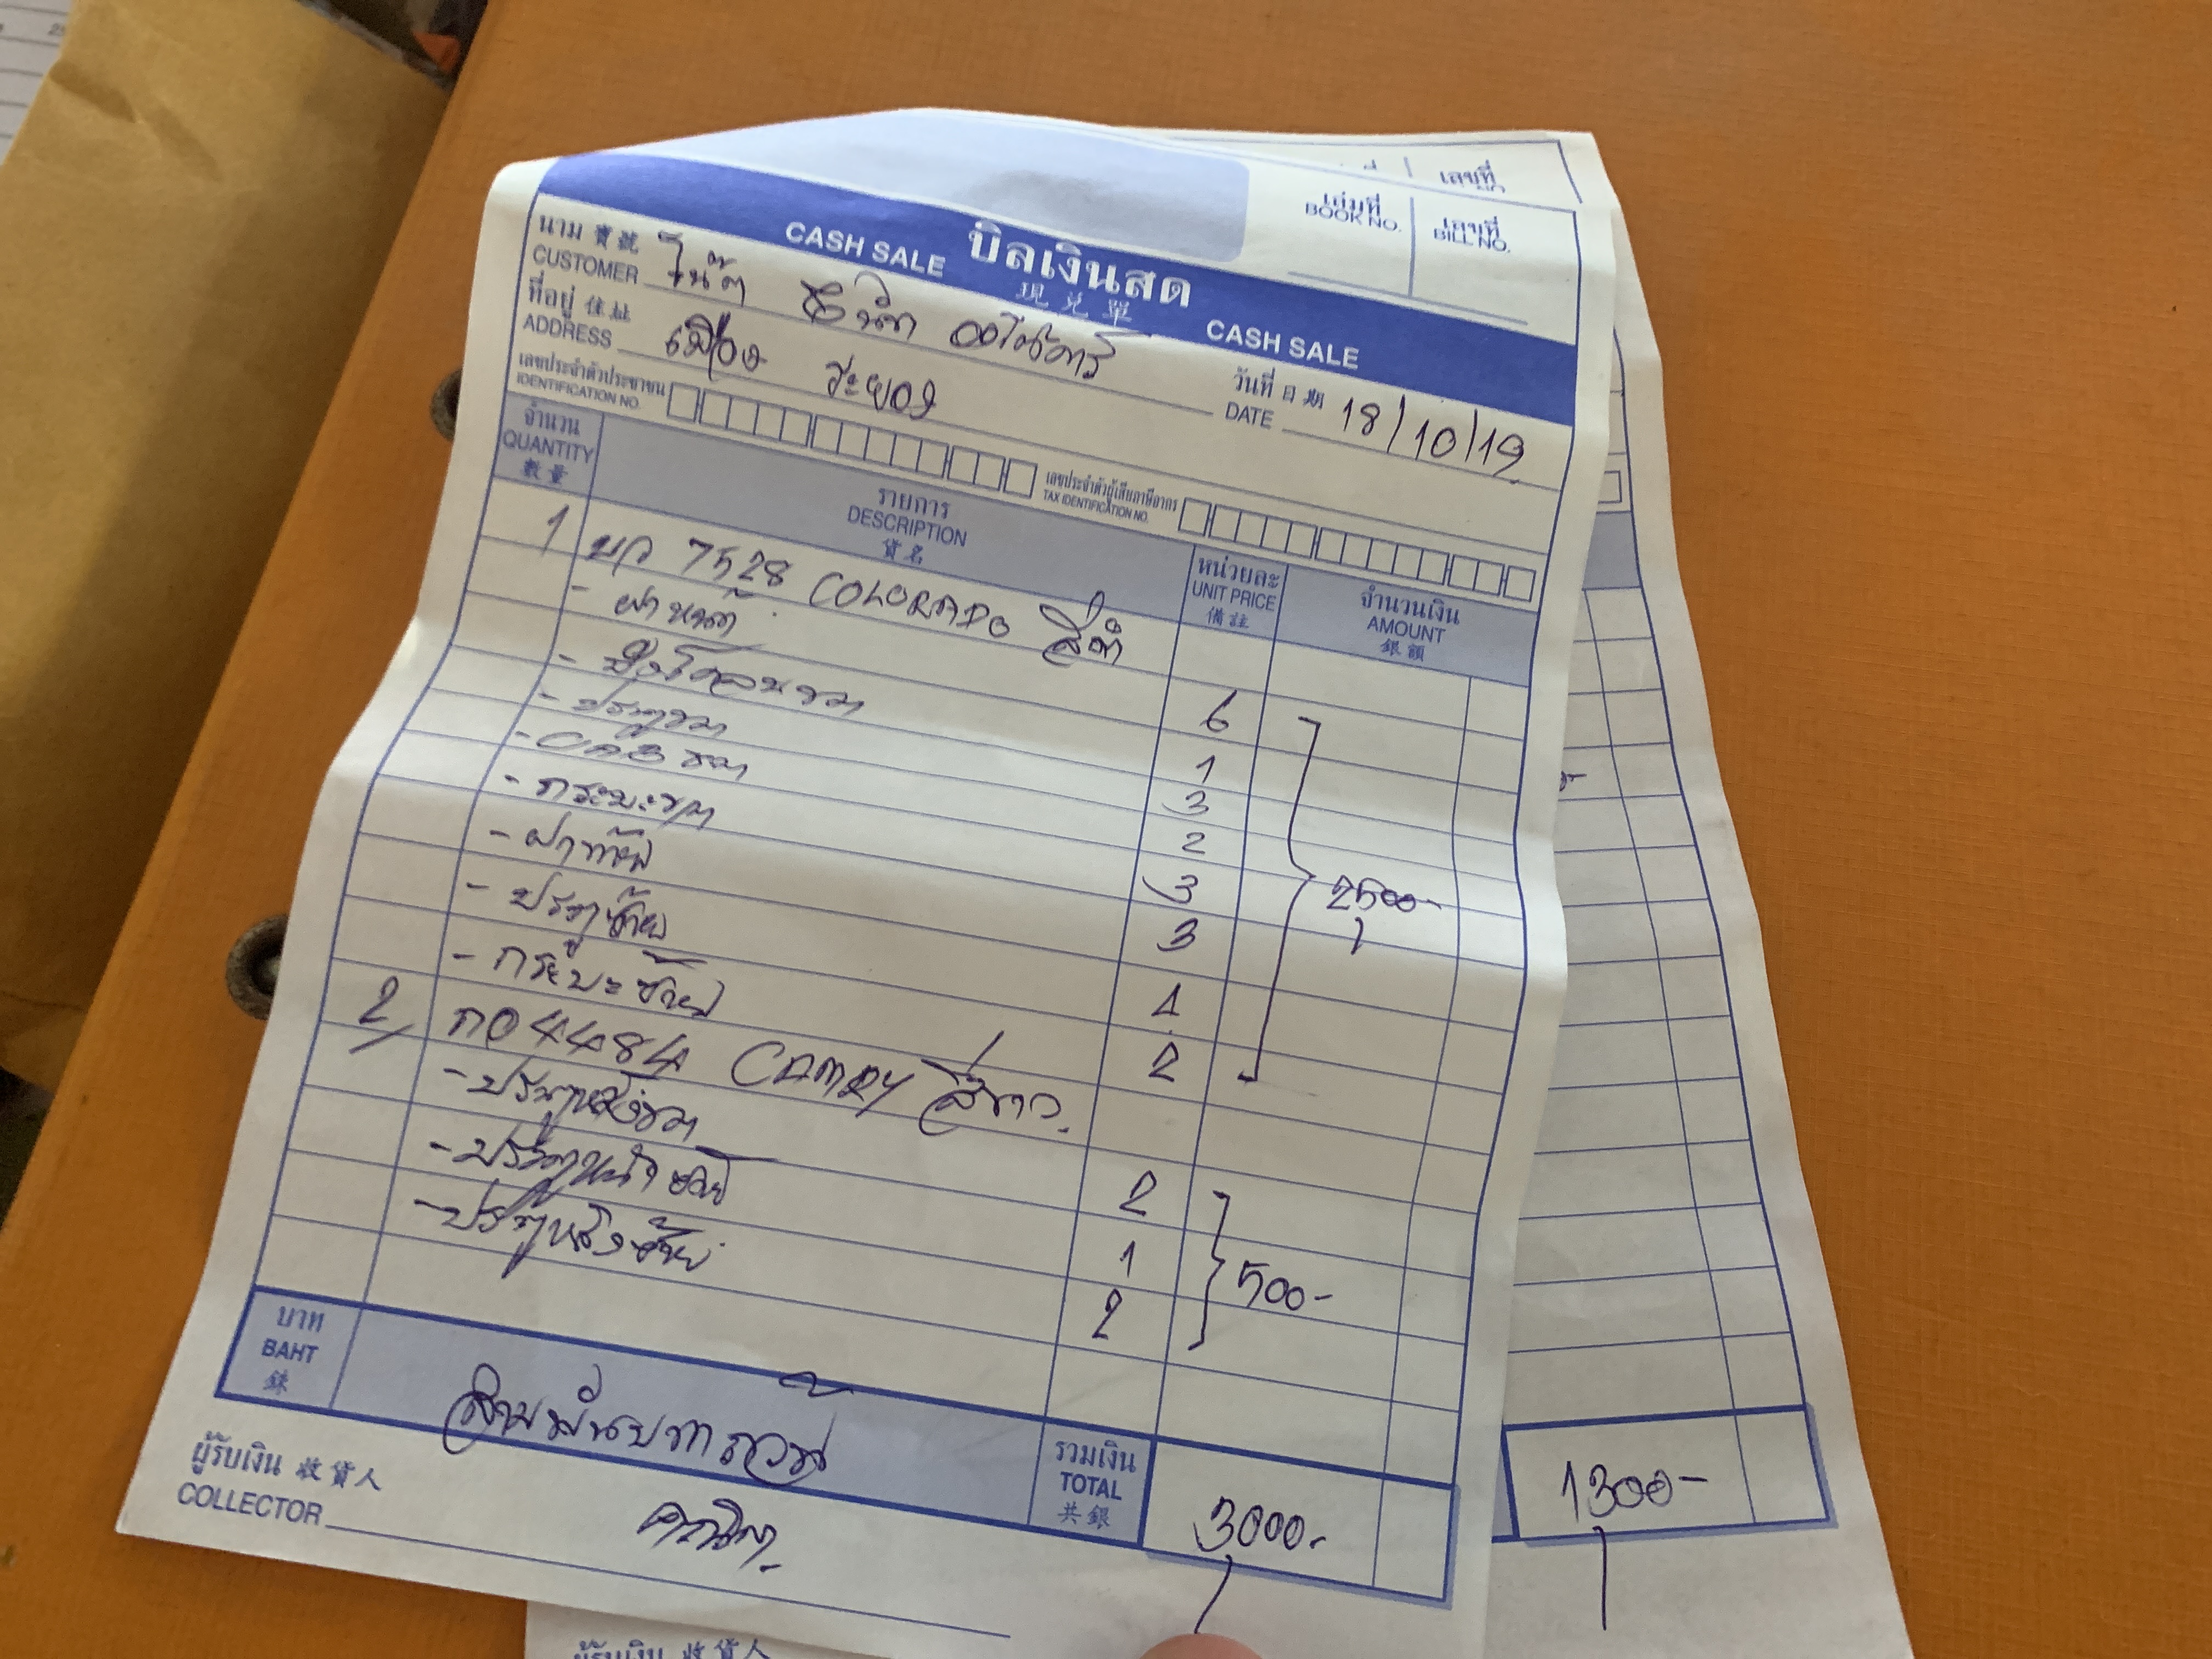 เลขที่
เล่มที่
BOOK NO.
เลขที่
BILL NO.
CASH SALE บิลเงินสด CASH SALE
現兌單
นาม 寶號 โน๊ต
CUSTOMER
ที่อยู่ 住址 เมือง ระยอง
ADDRESS
วันที่ 日期 18/10/19
DATE
เลขประจำตัวประชาชน
IDENTIFICATION NO.
เลขประจำตัวผู้เสียภาษีอากร
TAX IDENTIFICATION NO.
จำนวน
QUANTITY
數量
รายการ
DESCRIPTION
貨名
หน่วยละ
UNIT PRICE
備註
จำนวนเงิน
AMOUNT
銀額
1 7528 COLORADO สีดำ
- ฝาหน้า 6
- ขวา 1
- ประตูขวา 3
- CAB ขวา 2
- กระบะขวา 3
- ฝาท้าย 3
2500-
- ประตูซ้าย
- กระบะซ้าย 2
2 กอ 4484 CAMRY สีขาว
- ประตูหลังขวา 2
- ประตูหน้าซ้าย 1
500-
- ประตูหลังซ้าย 2
บาท
BAHT
銖
สามพันบาทถ้วน
รวมเงิน
TOTAL
共銀
3000-
1300-
ผู้รับเงิน 收貨人
COLLECTOR
ผู้รับเงิน 收貨人